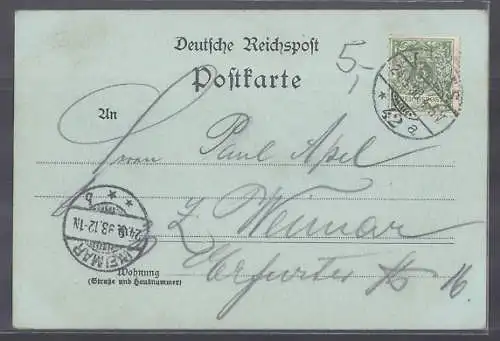 Deutsche Reichspost
5,-
Postkarte
5
An
42
a.
Herrn Paul Apel
WEIMAR
b
12-1N
Z. Weimar
Wohnung
(Straße und Hausnummer)
Erfurter 16.